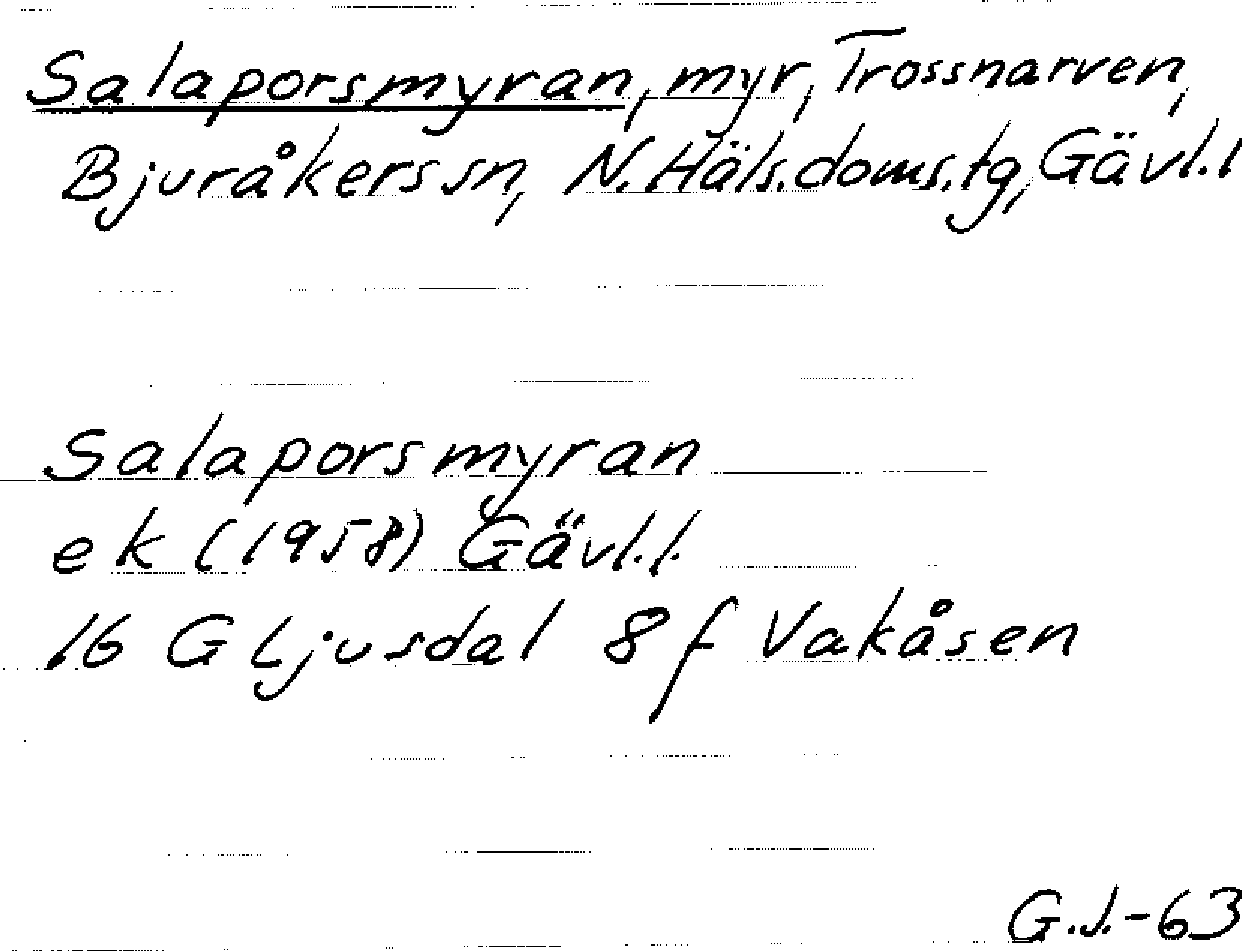 Salaporsmyran, myr, Trossnarven,
Bjuråkers sn, N. Häls. doms. tg, Gävl. l
Salaporsmyran
ek (1958) Gävl. l.
16 G Ljusdal 8 f Vakåsen
G. J. - 63